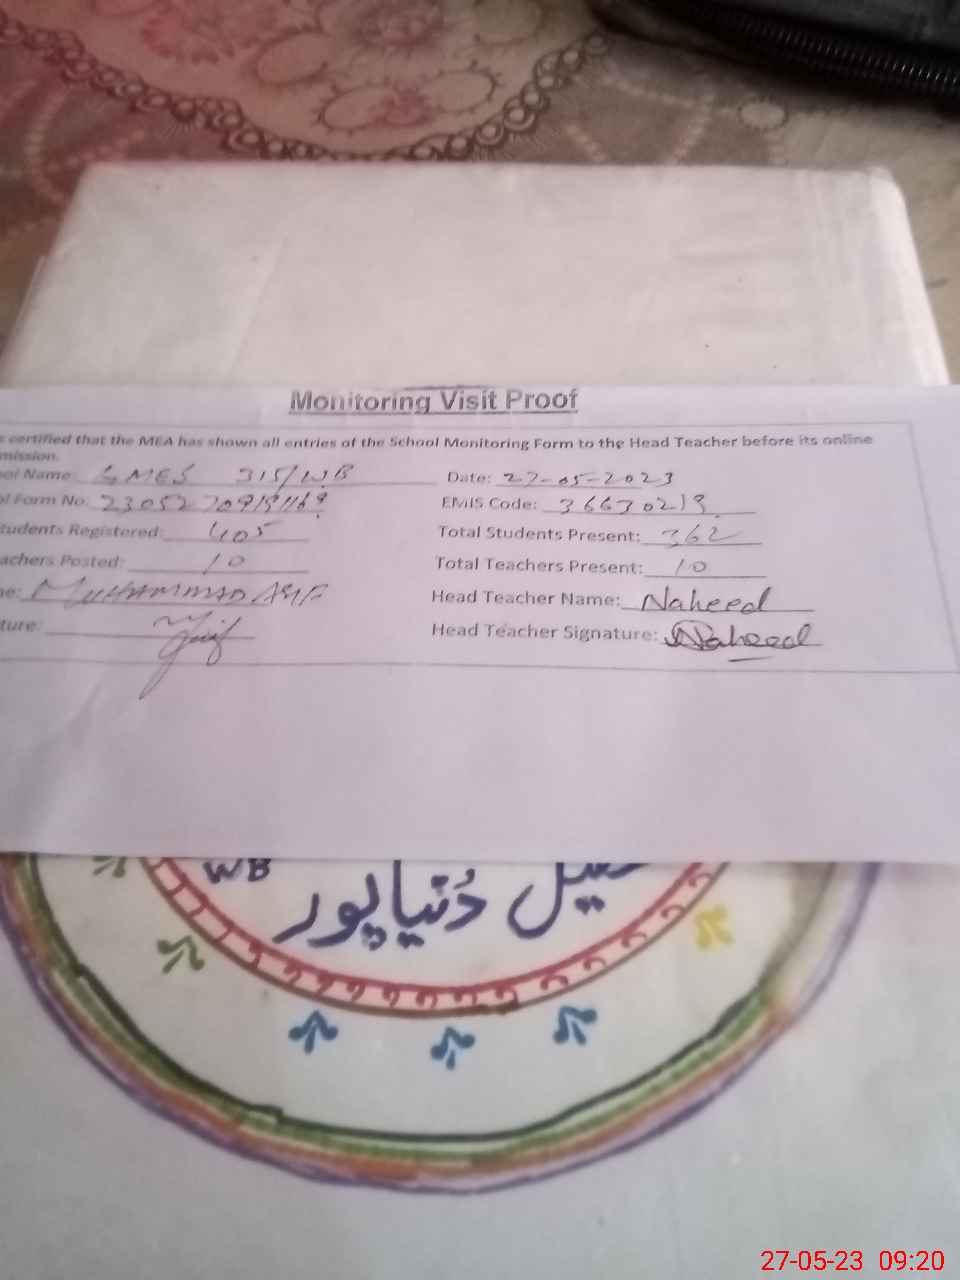 Monitoring Visit Proof
certified that the MEA has shown all entries of the School Monitoring Form to the Head Teacher before its online
mission.
ool Name: GMES 315/WB Date: 27-05-2023
Form No: EMIS Code: 36630213
tudents Registered: 405 Total Students Present: 362
achers Posted: 10 Total Teachers Present: 10
me: Muhammad Head Teacher Name: Naheed
ture: Head Teacher Signature: Naheed
WB
دُنیاپور
27-05-23 09:20